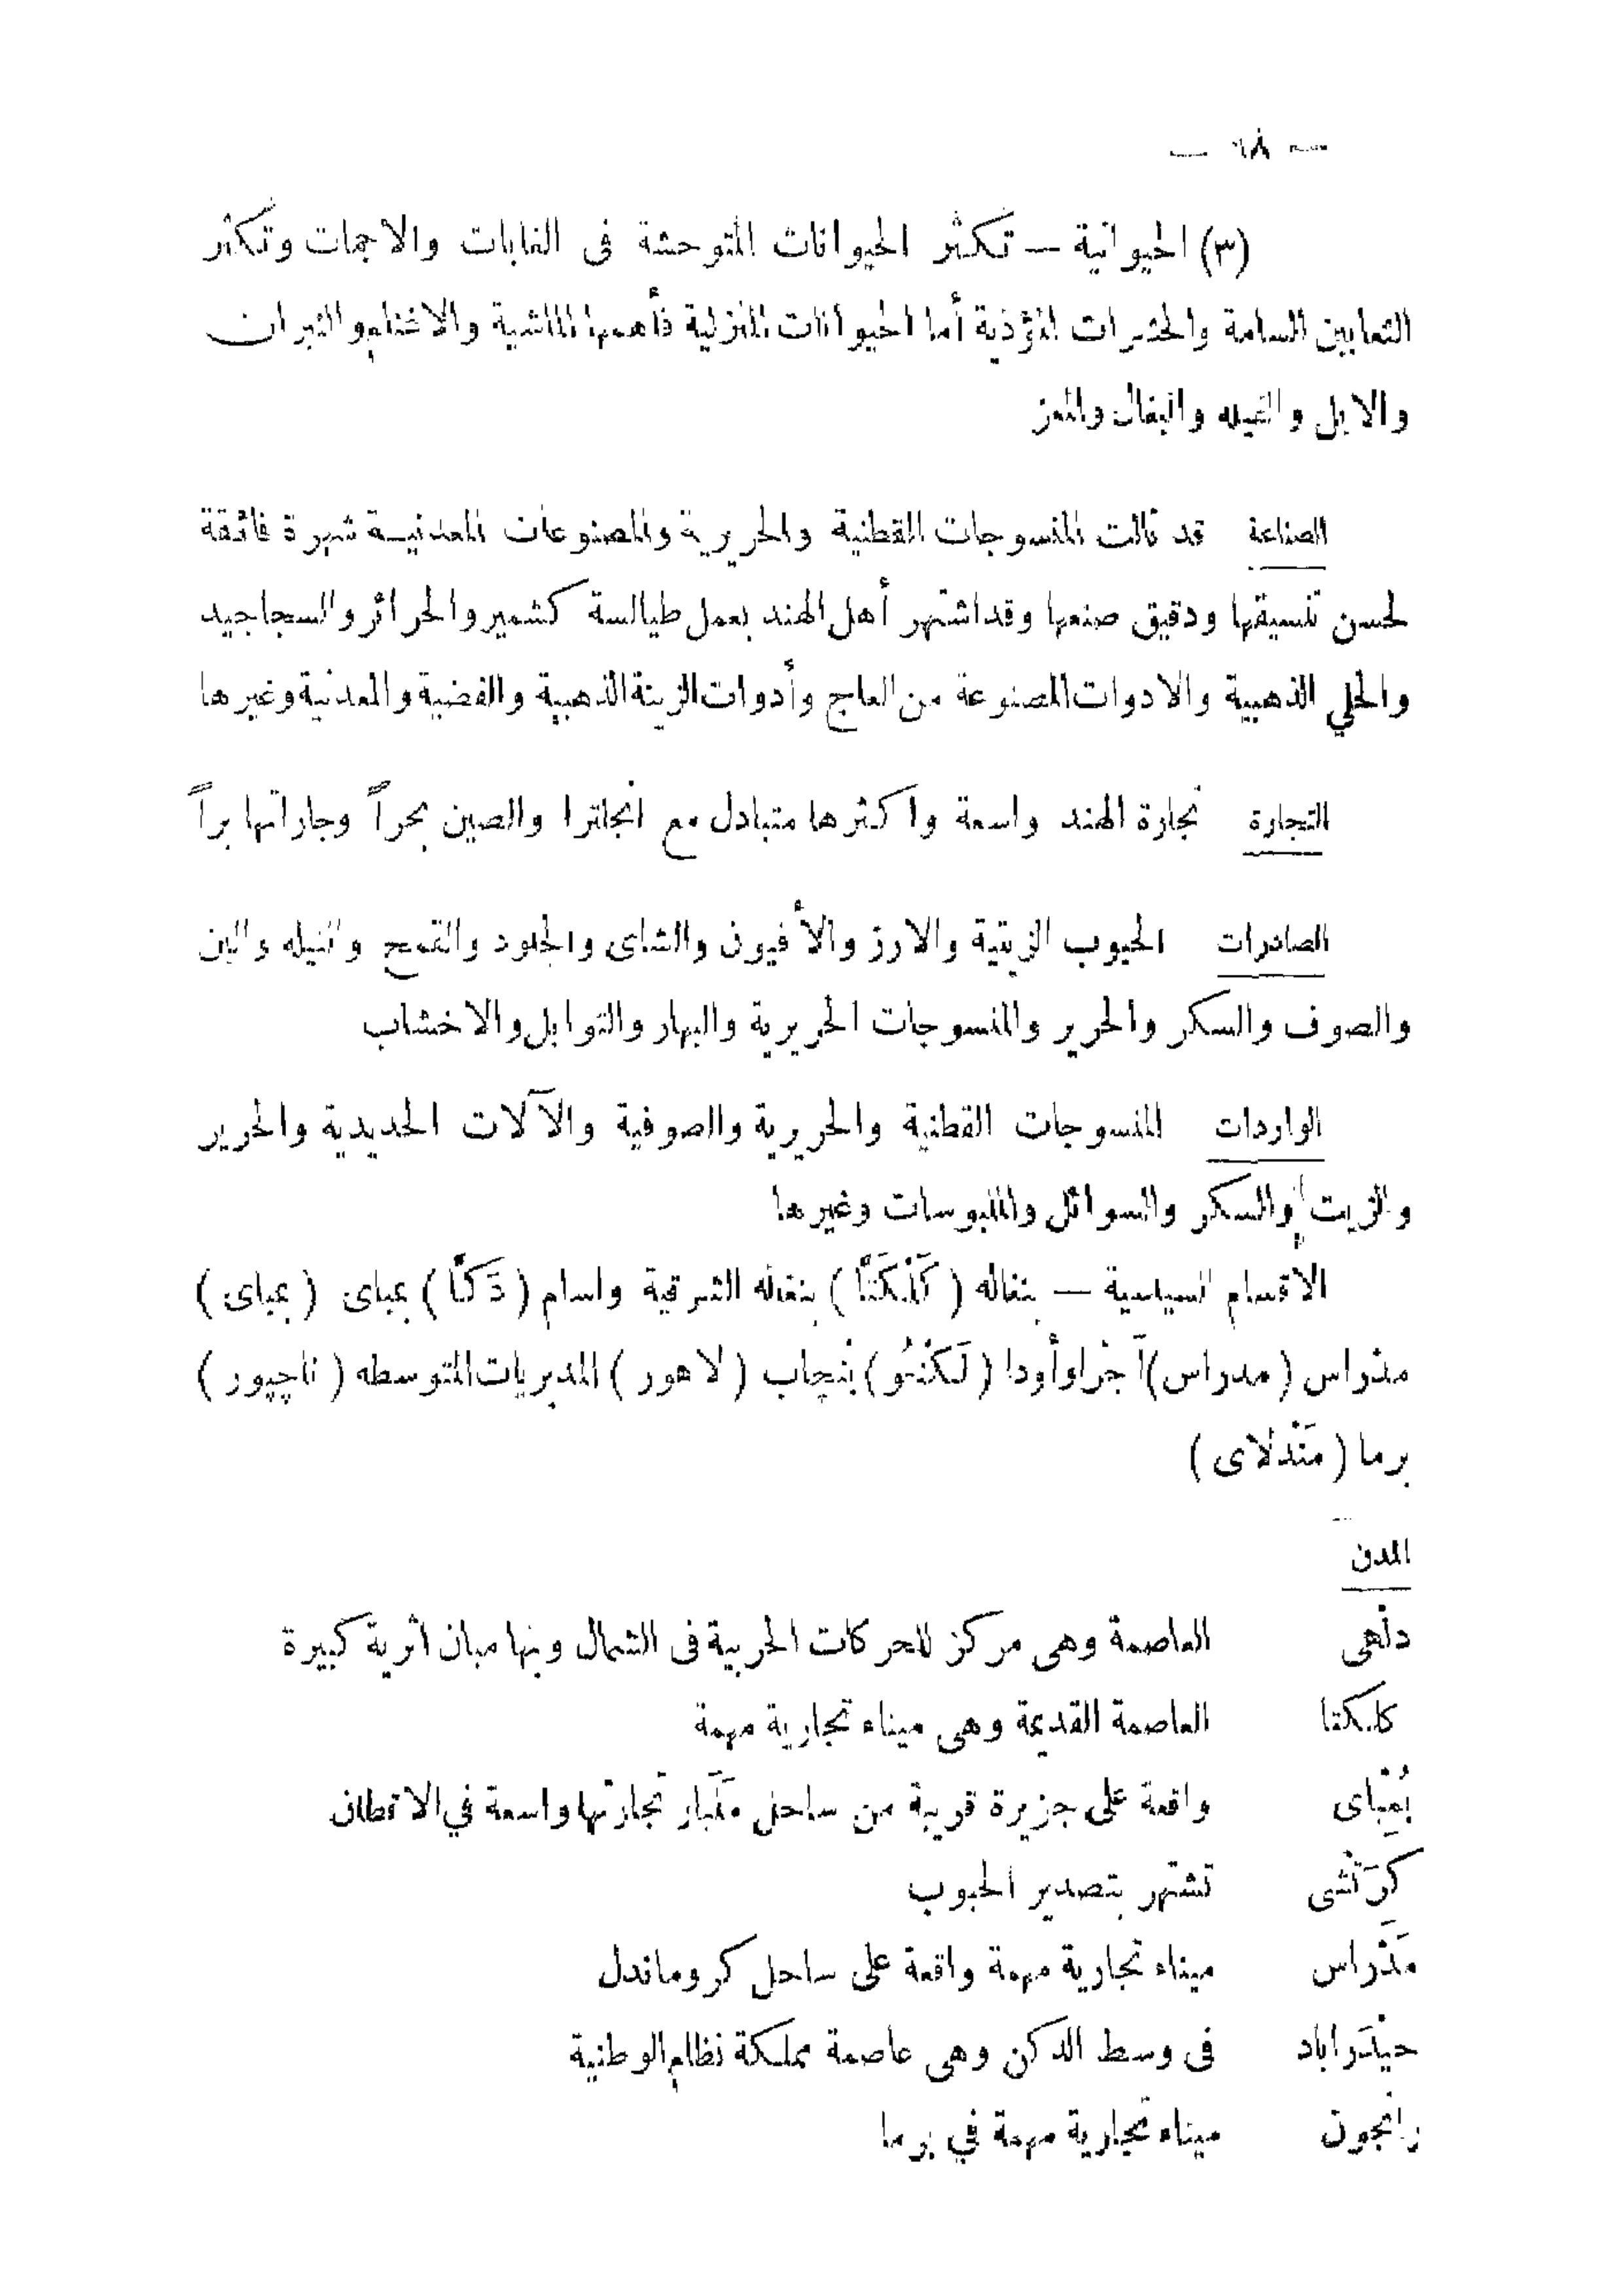 — ٦٨ —
(٣) الحيوانية — تكثر الحيوانات المتوحشة فى الغابات والاجمات وتكثر
الثعابين السامة والحشرات المؤذية أما الحيوانات المنزلية فأهمها الماشية والاغنام والثيران
والابل والفيله والبغال والمعز
الصناعة قد نالت المنسوجات القطنية والحريرية والمصنوعات المعدنيـة شهرة فائقة
لحسن تنسيقها ودقيق صنعها وقد اشتهر أهل الهند بعمل طيالسة كشمير والحرائر والسجاجيد
والحلي الذهبية والادوات المصنوعة من العاج وأدوات الزينة الذهبية والفضية والمعدنية وغيرها
التجارة تجارة الهند واسعة واكثرها متبادل مع انجلترا والصين بحراً وجاراتها براً
الصادرات الحبوب الزيتية والارز والأفيون والشاى والجلود والقمح والنيله والبن
والصوف والسكر والحرير والمنسوجات الحريرية والبهار والتوابل والاخشاب
الواردات المنسوجات القطنية والحريرية والصوفية والآلات الحديدية والحرير
والزيت والسكر والسوائل والملبوسات وغيرها
الاقسام السياسية — بنغاله (كَلْكَتَّا) بنغاله الشرقية واسام (دَكَّا) بمباى (بمباى)
مدْراس (مدراس) آجْرا وأودا (لَكْنُو) بنْجاب (لاهور) المديريات المتوسطه (ناجپور)
برما (مَنْدلاى)
المدن
دلْهى العاصمة وهى مركز للحركات الحربية فى الشمال وبها مبان اثرية كبيرة
كلكتا العاصمة القديمة وهى ميناء تجارية مهمة
بُمْباى واقعة على جزيرة قريبة من ساحل مَلَبار تجارتها واسعة في الاقطان
كَرَتْشى تشتهر بتصدير الحبوب
مَدْراس ميناء تجارية مهمة واقعة على ساحل كروماندل
حيْدَراباد فى وسط الدكن وهى عاصمة مملكة نظام الوطنية
رانجون ميناء تجارية مهمة في برما